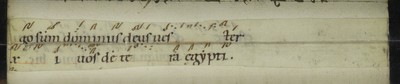 go sum dominus deus ves ter
r i uos de te ra egypti.